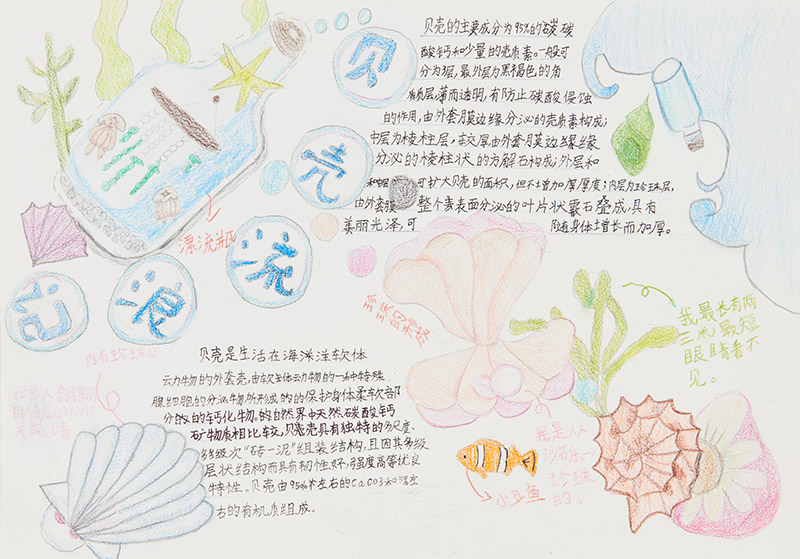 贝壳流浪记
贝壳的主要成分为95%的碳
酸钙和少量的壳质素。一般可
分为3层,最外层为黑褐色的角
质层,薄而透明,有防止碳酸侵蚀
的作用,由外套膜边缘分泌的壳质素构成;
中层为棱柱层,较厚由外套膜边缘缘
分泌的棱柱状的方解石构成;外层和
可扩大贝壳的面积,但不增加厚厚度;内层为珍珠层,
由外套膜整个表面分泌的叶片状霰石叠成,具有
美丽光泽,可随身体增长而加厚。
漂流瓶
珍珠的形成
我最长有两
三米最短
眼睛看不
见。
贝壳是生活在海洋洼软体
动物的外套壳,由软体动物的一种特殊
腺细胞的分泌物所形成的的保护身体柔软部
分的的钙化物,的自然界中天然,碳酸钙
矿物质相比较,贝壳具有独特的多尺度、
多级次“砖一泥”组装结构,且因其多级
层状结构而具有韧性好,强度高等优良
特性。贝壳由95%左右的CaCO3和
右的有机质组成。
我是从
沙石
珍珠
的。
小丑鱼